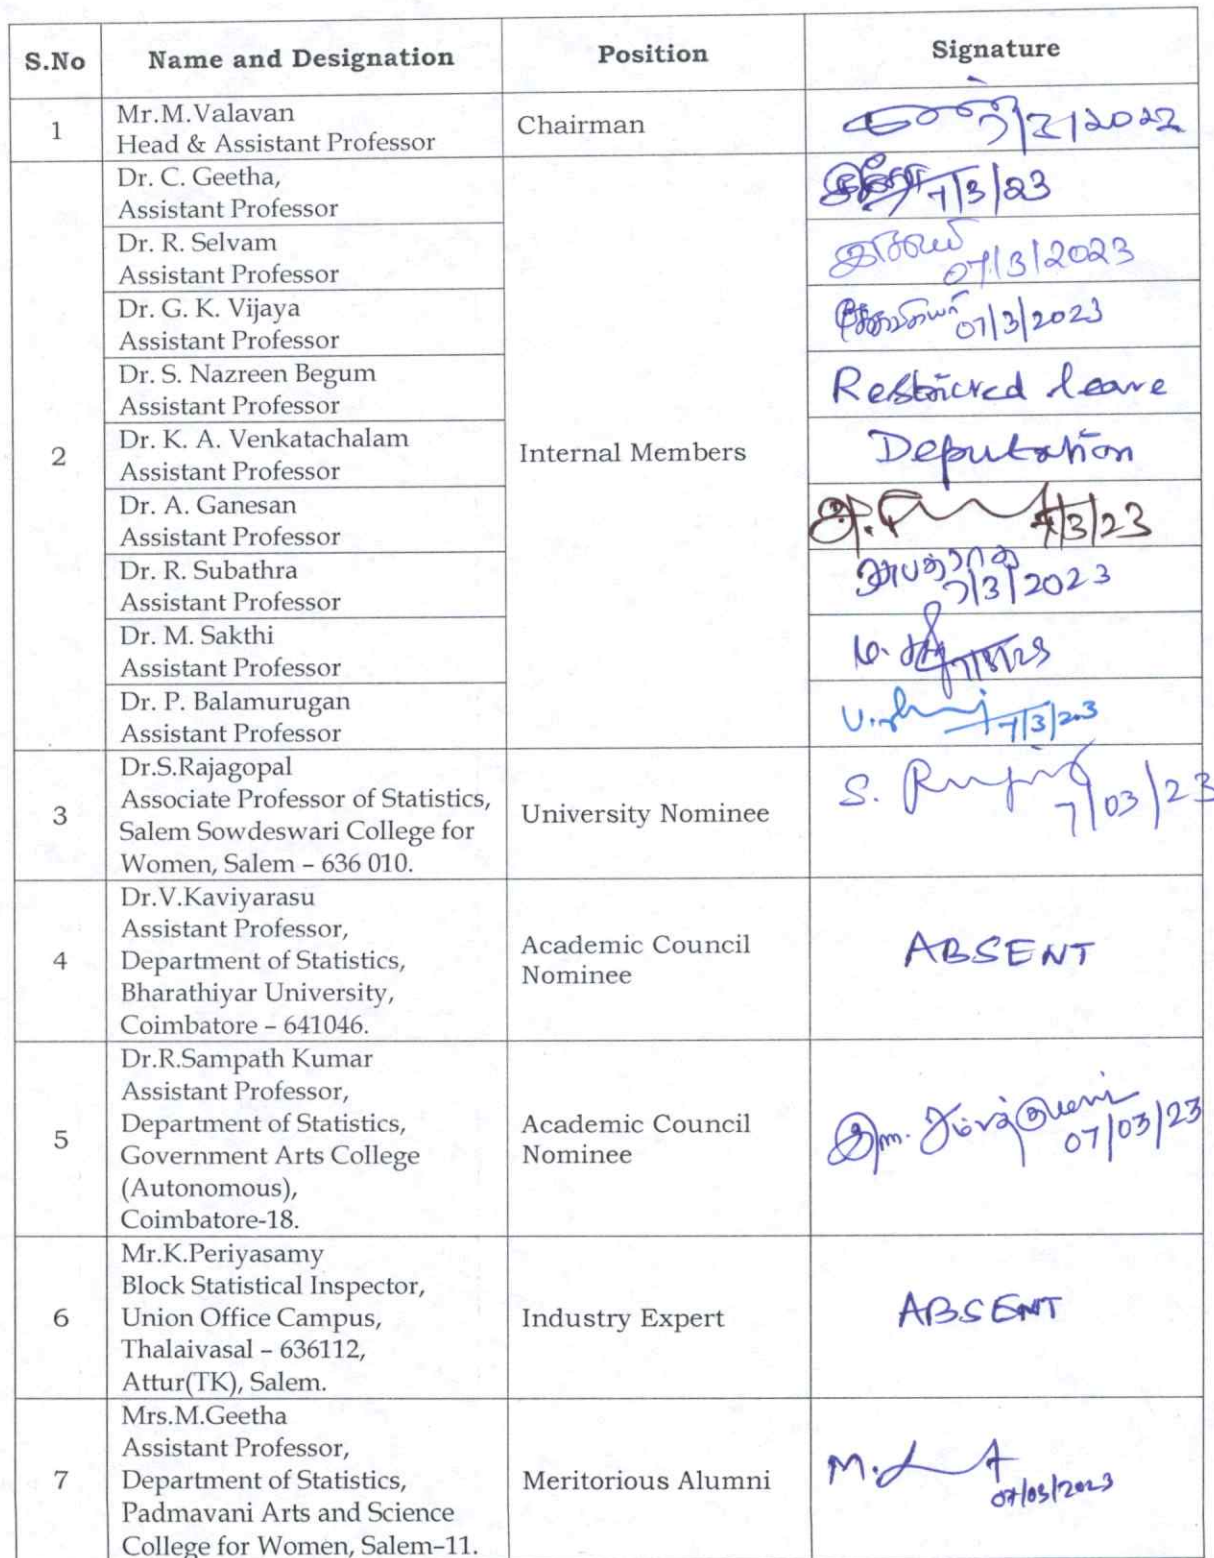 S.No Name and Designation Position Signature
1 Mr.M.Valavan
Head & Assistant Professor Chairman
Dr. C. Geetha,
Assistant Professor 7/3/23
Dr. R. Selvam
Assistant Professor 07/3/2023
Dr. G. K. Vijaya
Assistant Professor 07/3/2023
Dr. S. Nazreen Begum
Assistant Professor Restricted leave
2 Dr. K. A. Venkatachalam
Assistant Professor Internal Members Deputation
Dr. A. Ganesan
Assistant Professor 7/3/23
Dr. R. Subathra
Assistant Professor 7/3/2023
Dr. M. Sakthi
Assistant Professor
Dr. P. Balamurugan
Assistant Professor 7/3/23
3 Dr.S.Rajagopal
Associate Professor of Statistics,
Salem Sowdeswari College for
Women, Salem – 636 010. University Nominee S. 7/03/23
4 Dr.V.Kaviyarasu
Assistant Professor,
Department of Statistics,
Bharathiyar University,
Coimbatore – 641046. Academic Council
Nominee ABSENT
5 Dr.R.Sampath Kumar
Assistant Professor,
Department of Statistics,
Government Arts College
(Autonomous),
Coimbatore-18. Academic Council
Nominee 07/03/23
6 Mr.K.Periyasamy
Block Statistical Inspector,
Union Office Campus,
Thalaivasal – 636112,
Attur(TK), Salem. Industry Expert ABSENT
7 Mrs.M.Geetha
Assistant Professor,
Department of Statistics,
Padmavani Arts and Science
College for Women, Salem–11. Meritorious Alumni M. 07/03/2023